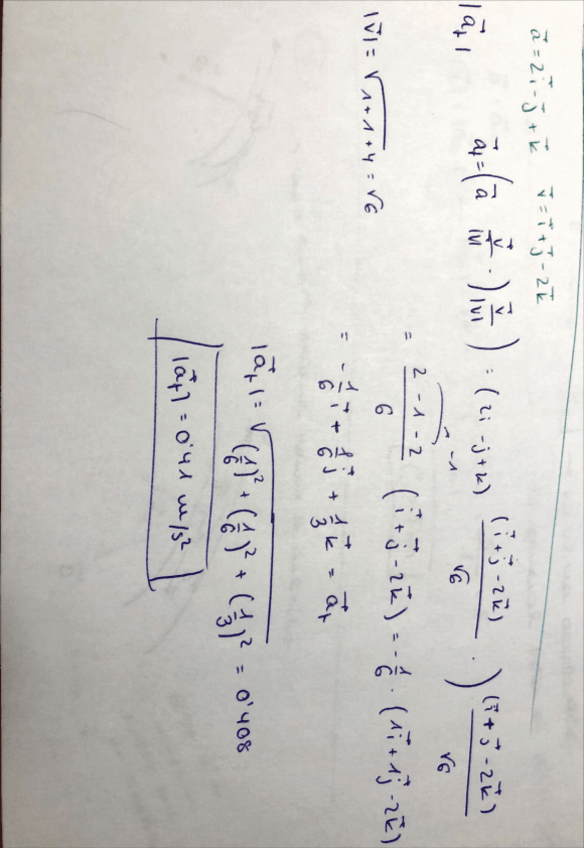 a⃗ = 2i⃗ - j⃗ + k⃗   v⃗ = i⃗ + j⃗ - 2k⃗
|a⃗ₜ|   a⃗ₜ = (a⃗ v⃗/|v| ·) v⃗/|v| ) = (2i - j + k) (i⃗ + j⃗ - 2k⃗)/√6 · ) (i⃗ + j⃗ - 2k⃗)/√6
|v⃗| = √(1+1+4) = √6
= (2 - 1 - 2)/6 → -1 (i⃗ + j⃗ - 2k⃗) = -1/6 · (1i⃗ + 1j⃗ - 2k⃗)
= -1/6 i⃗ + 1/6 j⃗ + 1/3 k⃗ = a⃗ₜ
|a⃗ₜ| = √((1/6)² + (1/6)² + (1/3)²) = 0'408
|a⃗ₜ| = 0'41 m/s²